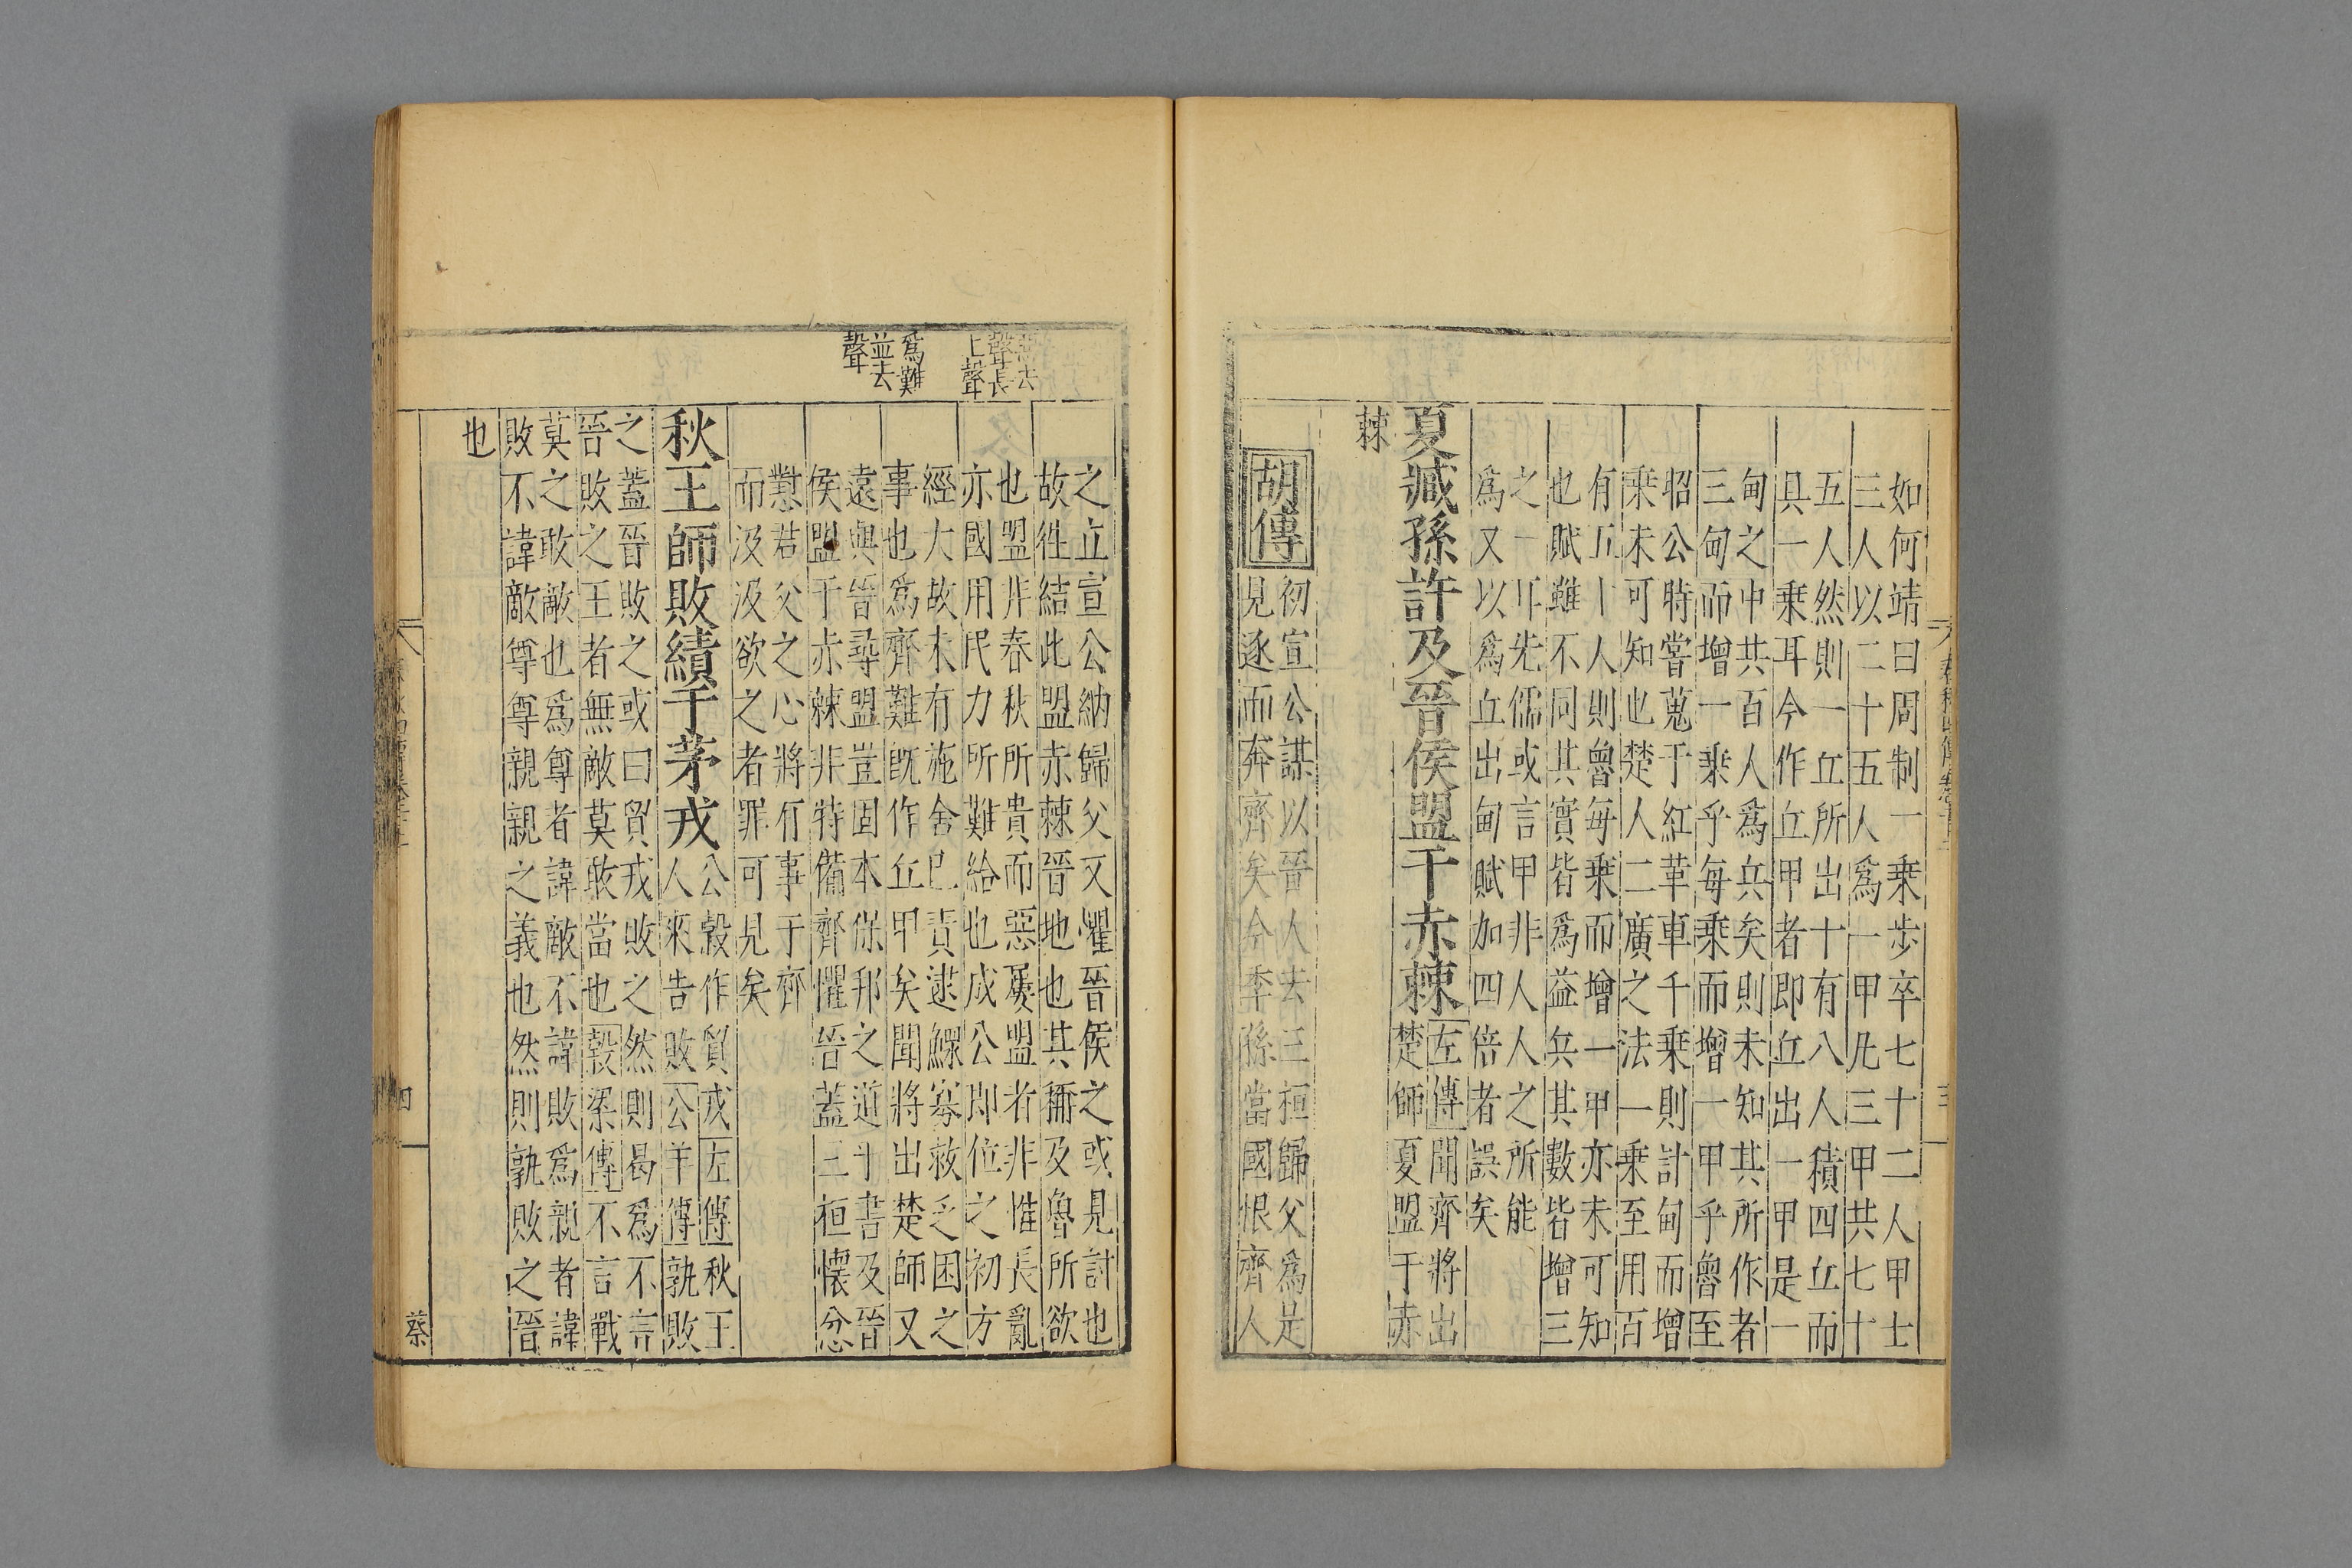 如何靖曰周制一乗步卒七十二人甲士
三人以二十五人爲一甲凡三甲共七十
五人然則一丘所出十有八人積四丘而
具一乗耳今作丘甲者即丘出一甲是一
甸之中共百人爲兵矣則未知其所作者
三甸而增一乗乎每乗而增一甲乎魯至
昭公時嘗蒐于紅革車千乗則計甸而增
乗未可知也楚人二廣之法一乗至用百
有五十人則魯每乗而增一甲亦未可知
也賦雖不同其實皆爲益兵其數皆增三
之一耳先儒或言甲非人人之所能
爲又以爲丘出甸賦加四倍者誤矣
夏臧孫許及晉侯盟于赤棘
左傳聞齊將出
楚師夏盟于赤
棘
胡傳
初宣公謀以晉人去三桓歸父爲是
見逐而奔齊矣今季孫當國恨齊人
春秋四傳卷
三
去
聲長
上聲
爲難
並去
聲
之立宣公納歸父又懼晉侯之或見討也
故徃結此盟赤棘晉地也其稱及魯所欲
也盟非春秋所貴而惡屢盟者非惟長亂
亦國用民力所難給也成公即位之初方
經大故未有施舍巳責逮鰥寡救乏困之
事也爲齊難旣作丘甲矣聞將出楚師又
遠與晉尋盟豈固本保邦之道乎書及晉
侯盟于赤棘非特備齊懼晉蓋三桓懷忿
懟君父之心將有事于齊
而汲汲欲之者罪可見矣
秋王師敗績于茅戎
公榖作貿戎左傳秋王
人來告敗公羊傳孰敗
之蓋晉敗之或曰貿戎敗之然則曷爲不言
晉敗之王者無敵莫敢當也榖梁傳不言戰
莫之敢敵也爲尊者諱敵不諱敗爲親者諱
敗不諱敵尊尊親親之義也然則孰敗之晉
也
四
蔡